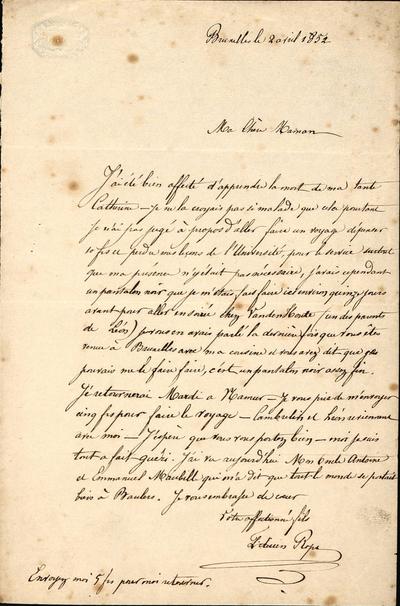 Bruxelles le 2 avril 1852
Ma Chère Maman
J'ai été bien affecté d'apprendre la mort de ma tante
Catherine — je ne la croyais pas si malade que cela pourtant
je n'ai pas jugé à propos d'aller faire un voyage dépenser
10 frs et perdre mes leçons de l'Université, pour le service surtout
que ma présence n'y était pas nécessaire, j'avais cependant
un pantalon noir que je m'étais fait faire ici environ quinze jours
avant pour aller en soirée chez Vanden
de Léon) je vous en avais parlé la dernière fois que vous êtes
venue à Bruxelles avec ma cousine et vous avez dit que je
pouvais me le faire faire, c'est un pantalon noir assez fin.
Je retournerai Mardi à Namur — Je vous prie de m'envoyer
cinq frs pour faire le voyage — et Léon reviennent
avec moi — J'espère que vous vous portez bien — moi je suis
tout à fait guéri. J'ai vu aujourd'hui Mon Oncle Antoine
et Emmanuel qui m'a dit que tout le monde se portait
bien à Baulers. Je vous embrasse de cœur
Votre affectionné fils
Rops
Envoyez moi 5 frs pour m'en retourner.